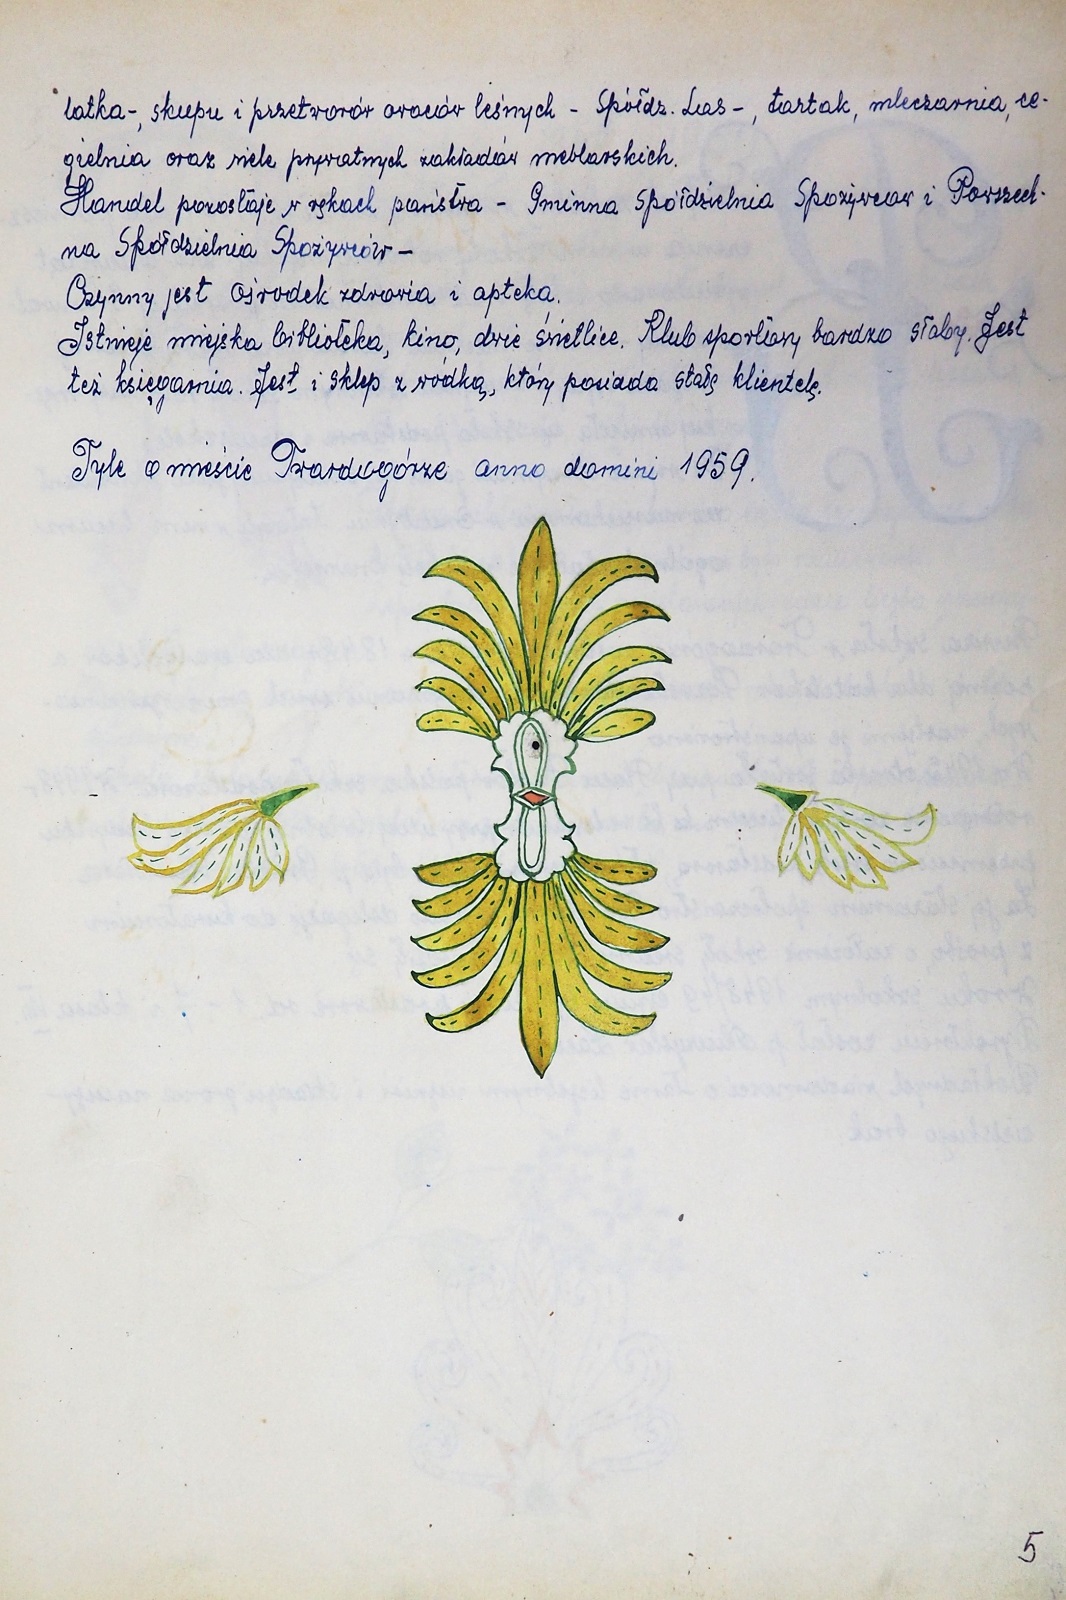 latka-, skupu i przetworów owoców leśnych - Spółdz. Las-, tartak, mleczarnia, ce-
gielnia oraz wiele prywatnych zakładów meblarskich.
Handel pozostaje w rękach państwa - Gminna Spółdzielnia Spożywców i Powszech-
na Spółdzielnia Spożywców-
Czynny jest ośrodek zdrowia i apteka.
Istnieje miejska biblioteka, kino, dwie świetlice. Klub sportowy bardzo słaby. Jest
też księgarnia. Jest i sklep z wódką, który posiada stałą klientelę.
Tyle o mieście Twardogórze anno domini 1959.
5